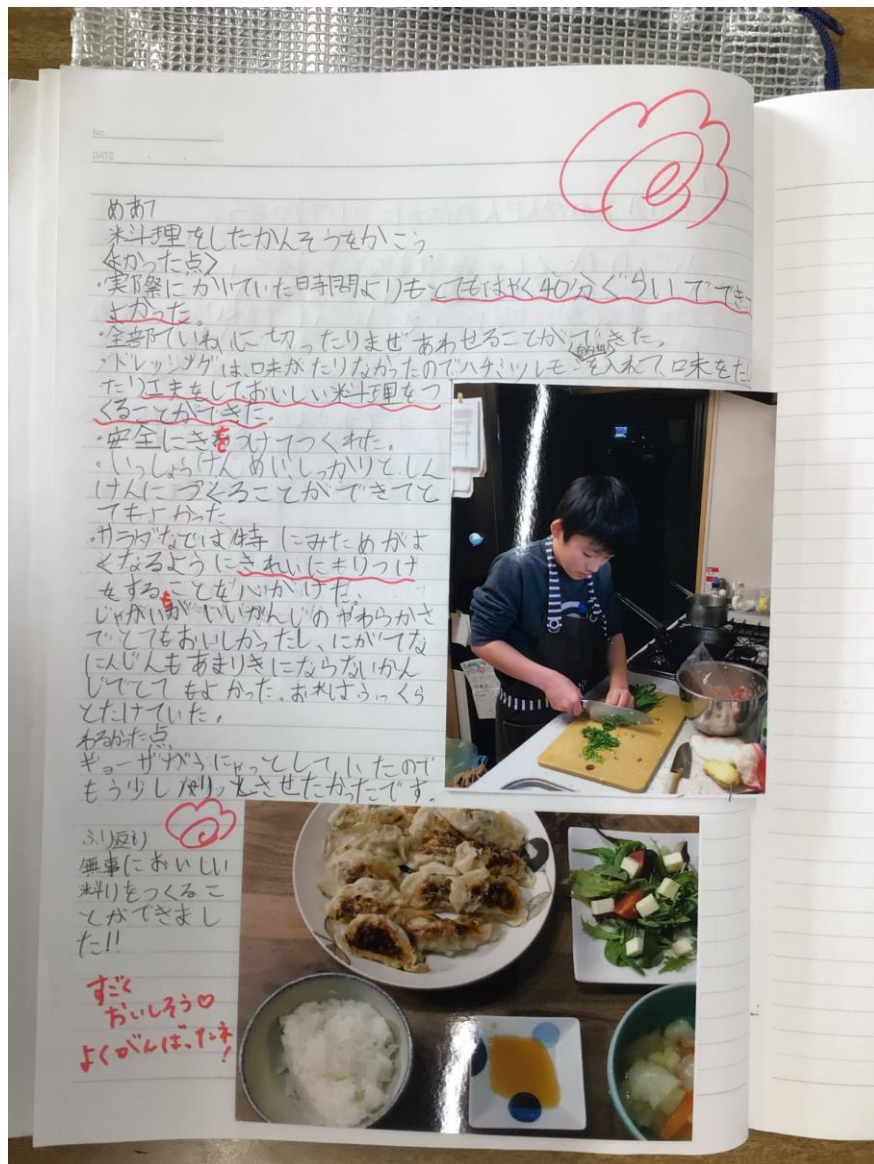 No.
DATE
めあて
料理をしたかんそうをかこう
<よかった点>
・実際にかいていた時間よりもとてもはやく40分ぐらいでできて
よかった。
・全部ていねいに切ったりまぜあわせることができた。
・ドレッシングは、味がたりなかったのでハチミツレモンを入れて、味をたし
たり工夫をしておいしい料理をつ
くることができた。
・安全にきをつけてつくれた。
・いっしょうけんめいしっかりと、しん
けんにつくることができてと
てもよかった
・サラダなどは特にみためがよ
くなるようにきれいにもりつけ
をすることを心がけた。
じゃがいもがいいかんじのやわらかさ
でとてもおいしかったし、にがてな
にんじんもあまりきにならないかん
じでとてもよかった。お米はふっくら
とたけていた。
わるかった点
ギョーザがふにゃっとして、いたので
もう少しパリッとさせたかったです。
ふり返り
無事においしい
料りをつくるこ
とができまし
た!!
すごく
おいしそう♡
よくがんばったネ
!